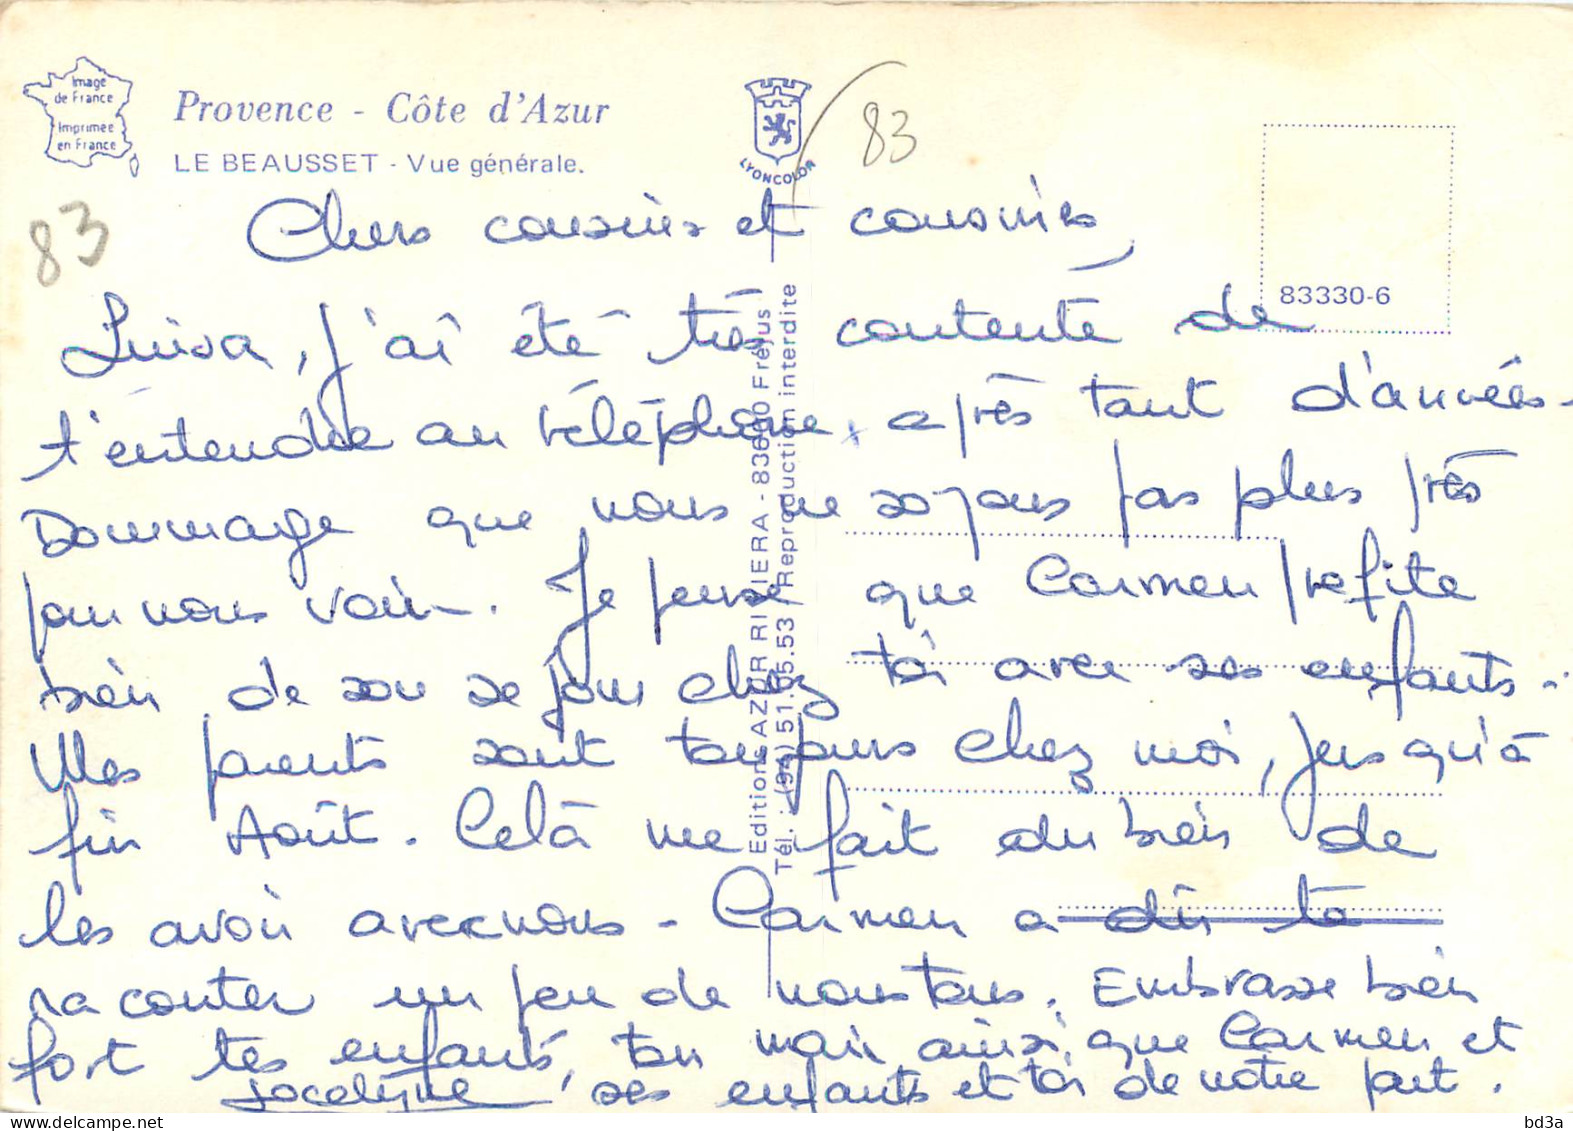 Image
de France
Imprimée
en France
Provence - Côte d'Azur
LE BEAUSSET - Vue générale.
LYONCOLOR
83
83
83330-6
Editions AZUR RIVIERA - 83600 Fréjus
Tél. : (94) 51.05.53 / Reproduction interdite
Chers cousins et cousines,
Luisa, j'ai été très contente de
t'entendre au téléphone, après tant d'années.
Dommage que nous ne soyons pas plus près
pour nous voir. Je pense que Carmen profite
bien de son séjour chez toi avec ses enfants.
Mes parents sont toujours chez moi, jusqu'à
fin Août. Celà me fait du bien de
les avoir avec nous - Carmen a dû te
raconter un peu de nous tous. Embrasse bien
fort tes enfants, ton mari ainsi que Carmen et
ses enfants et toi de notre part.
Jocelyne